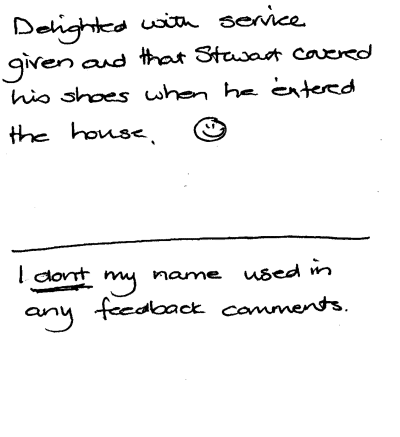 Delighted with service
given and that Stewart covered
his shoes when he entered
the house. ☺
I dont my name used in
any feedback comments.